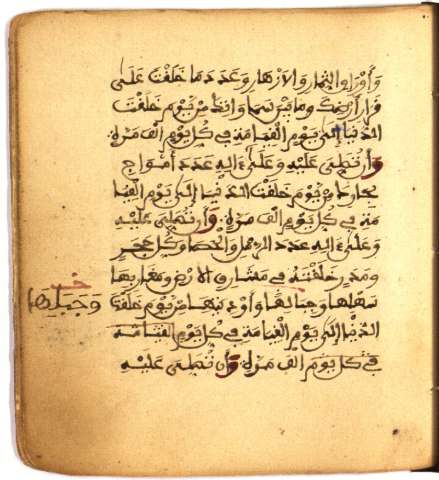 وأوراق الثمار والازهار وعدد ما خلقت على
قرار أرضك وما بين سماواتك من يوم خلقت
الدنيا إلى يوم القيامة في كل يوم الف مرة
وأن تصلي عليه وعلى ءاله عدد أمواج
بحارك من يوم خلقت الدنيا إلى يوم القيا
مة في كل يوم الف مرة وأن تصلي عليه
وعلى ءاله عدد الرمل والحصا وكل حجر
ومدر خلقته في مشارق الارض ومغاربها
سهلها وجبالها وأوديتها من يوم خلقت
وجبلها
الدنيا إلى يوم القيامة في كل يوم القيامة
في كل يوم الف مرة وأن تصلي عليه